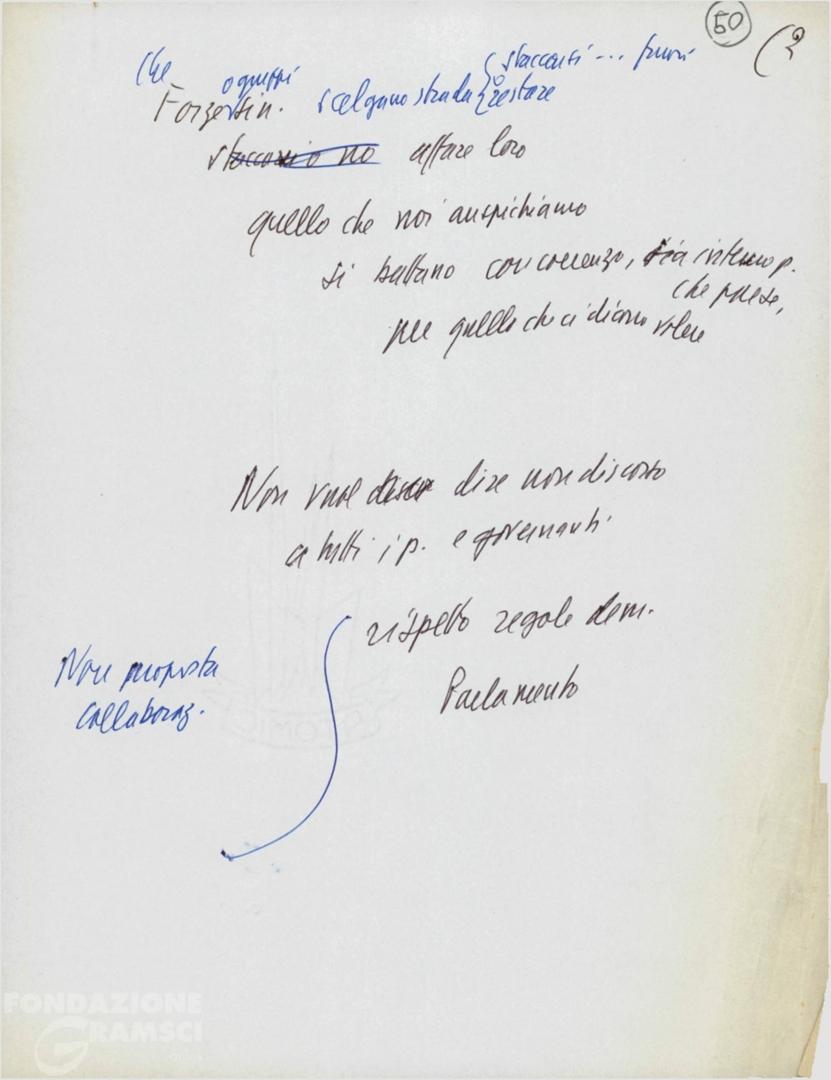 50
(2
Che o gruppi { staccarsi ... fuori
Forze sin. scelgano strada { o restare
staccarsi o no affare loro
quello che noi auspichiamo
si battano con coerenza, sia interno p.
che paese,
per quello che ci dicono volere
Non vuol dire non discorso
a tutti i p. e governanti
rispetto regole dem.
Non proposta
collaboraz.
Parlamento
FONDAZIONE
GRAMSCI